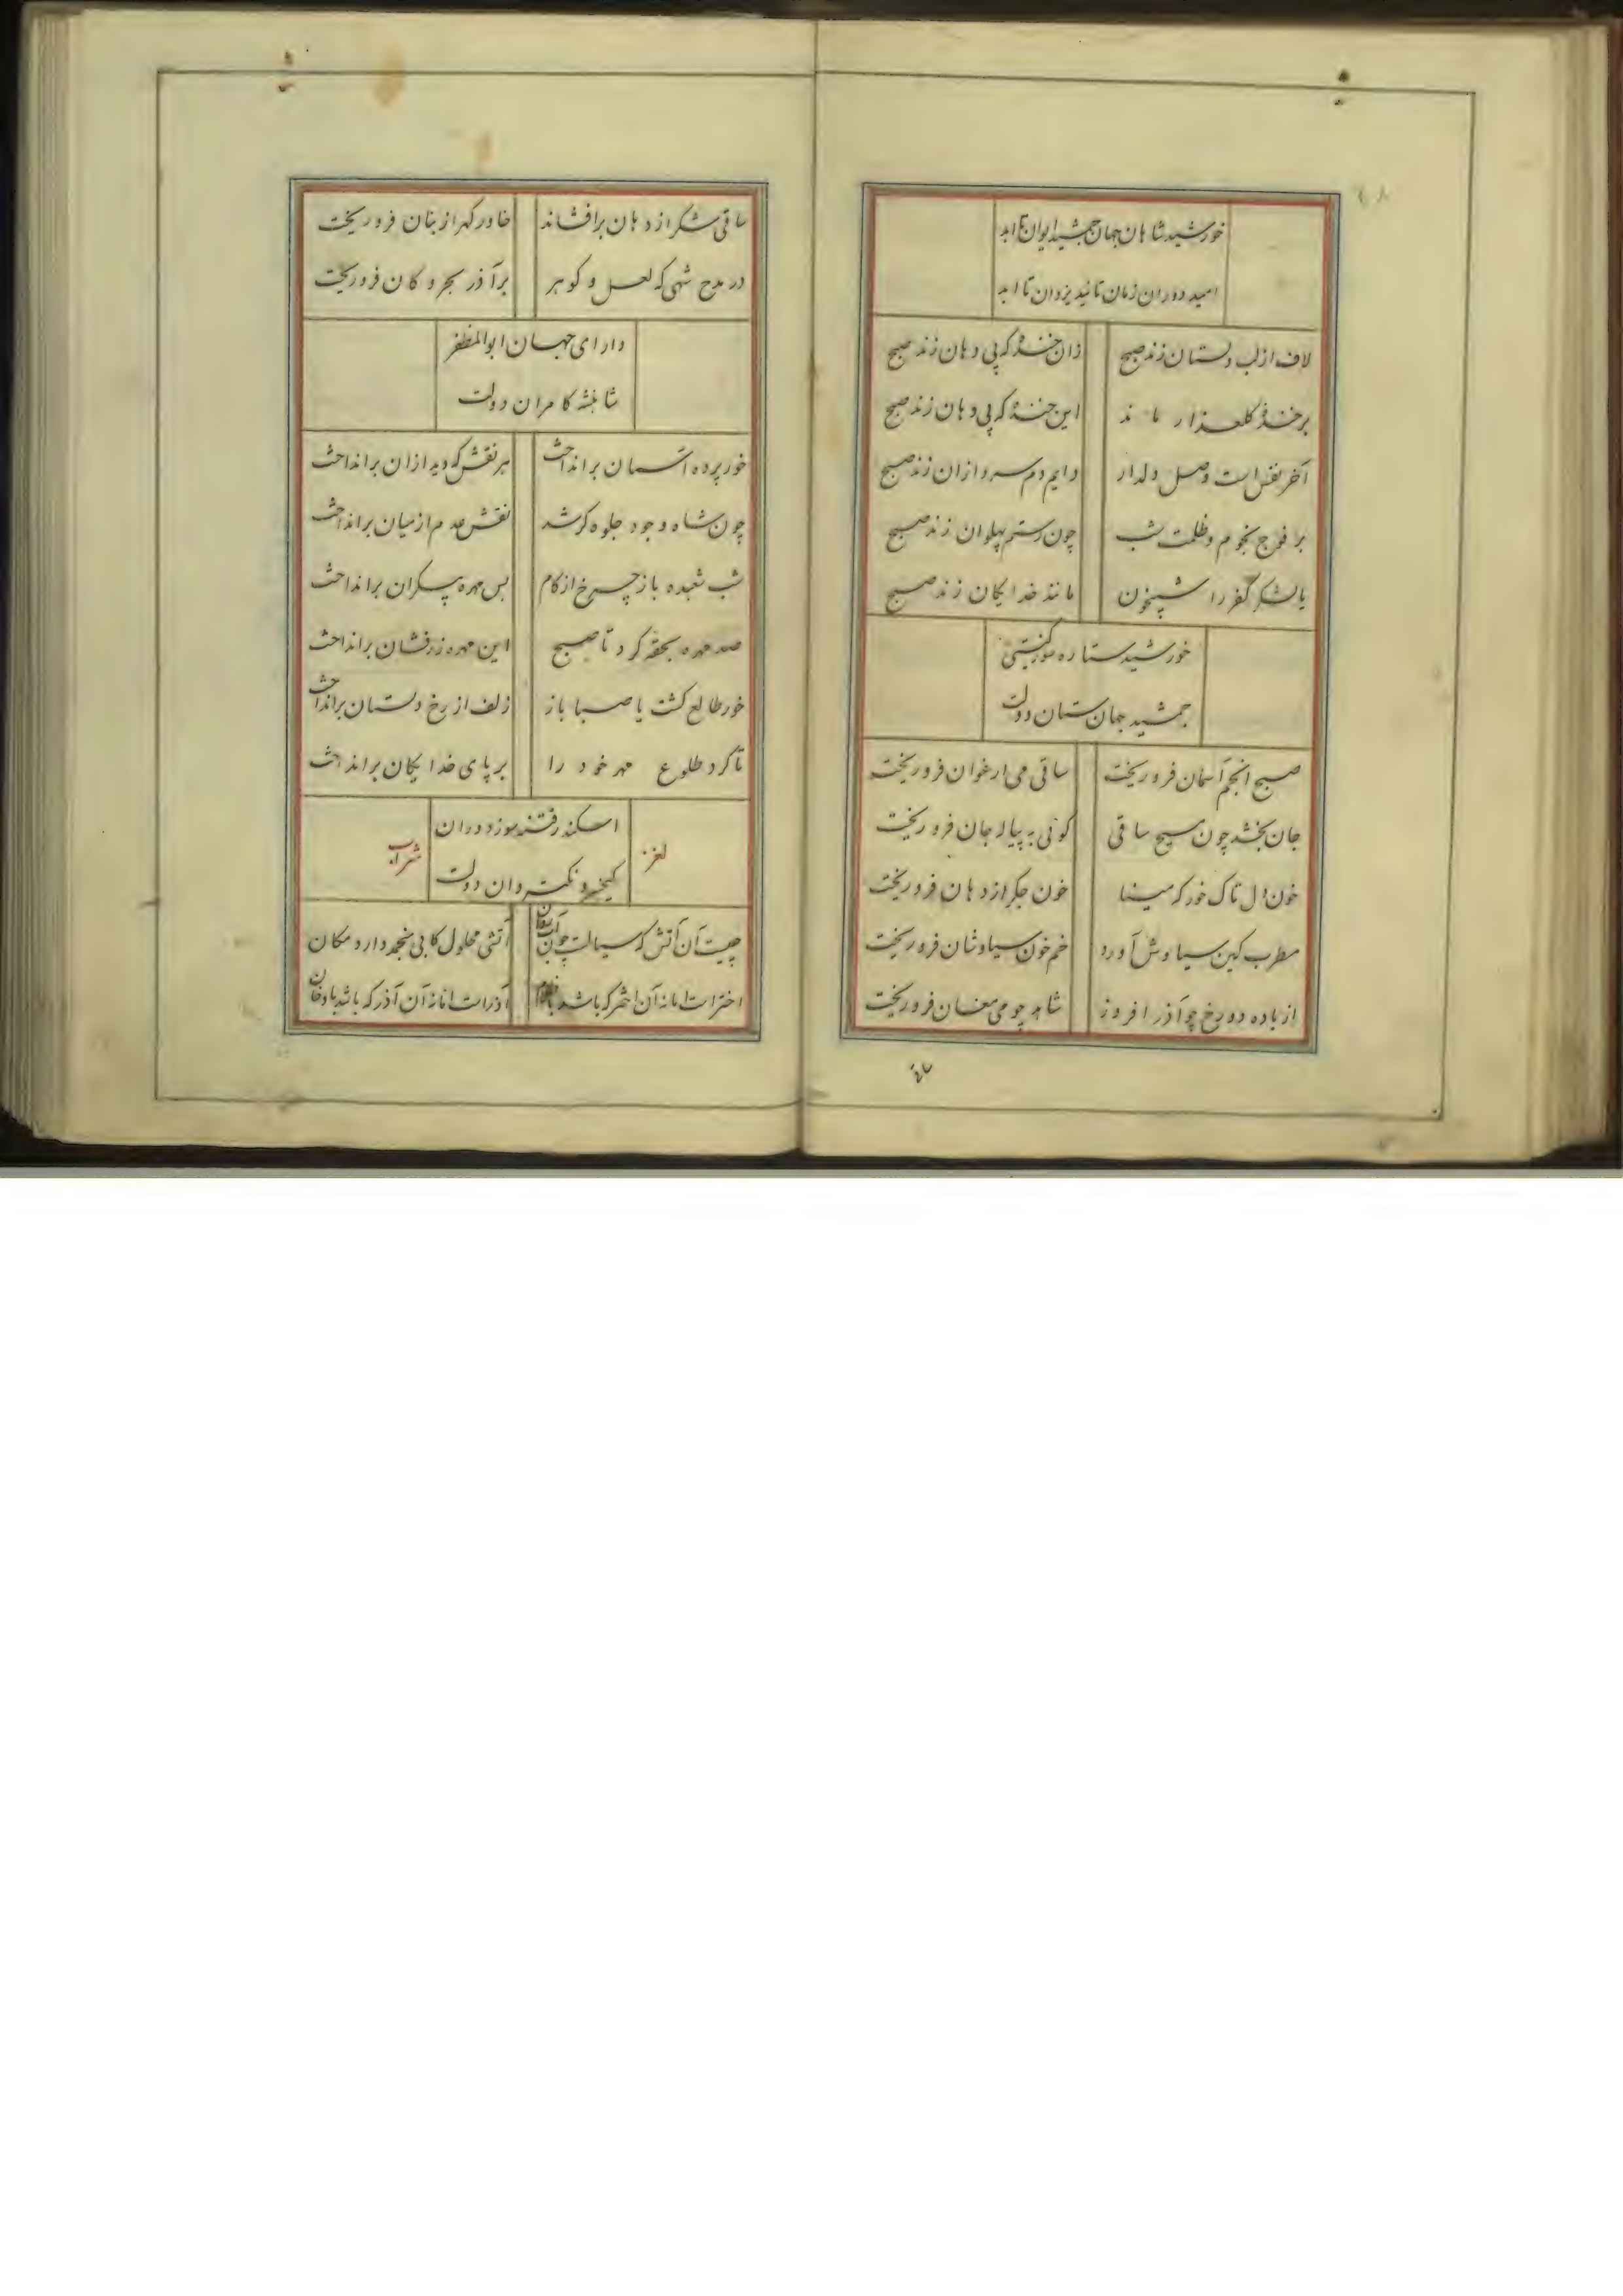 خورشید شاهان جهان جمشید ایوان تا ابد
امید دوران زمان تائید یزدان تا ابد
لاف از لب دلستان زند صبح زان خنده که بی دهان زند صبح
بر خندهٔ گلعذار ماند این خنده که بی دهان زند صبح
آخر نفس است وصل دلدار دایم دم سرد ازان زند صبح
بر فوج نجوم و ظلمت شب چون رستم پهلوان زند صبح
یا لشکر کفر را شبیخون مانند خدایگان زند صبح
خورشید ستاره
جمشید جهان ستان دولت
صبح انجم آسمان فرو ریخت ساقی می ارغوان فرو ریخت
جان بخشد چون مسیح ساقی گوئی به پیاله جان فرو ریخت
خون دل تاک خورد که مینا خون جگر از دهان فرو ریخت
مطرب کین سیاوش آورد خم خون سیاوشان فرو ریخت
از باده دو رخ چو آذر افروز شاهد چو می مغان فرو ریخت
ساقی شکر از دهان برافشاند خاور گهر از بنان فرو ریخت
در مدح شهی که لعل و گوهر بر آذر بحر و کان فرو ریخت
دارای جهان ابوالمظفر
شاهنشه کامران دولت
خور پرده آسمان برانداخت هر نقش که دید ازان برانداخت
چون شاه وجود جلوه گر شد نقش عدم از میان برانداخت
شب شعبده باز چرخ از کام بس مهره پیکران برانداخت
صد مهره بحقه کرد تا صبح این مهره زرفشان برانداخت
خور طالع گشت یا صبا باز زلف از رخ دلستان برانداخت
تا کرد طلوع مهر خود را بر پای خدایگان برانداخت
لغز شراب
اسکندر دوران
کیخسرو دولت
چیست آن آتش که سیالست چون آب روان آتشی محلول کابی منجمد دارد مکان
اختر است اما نه آن اختر که باشد آذر است اما نه آن آذر که باشد با دخان